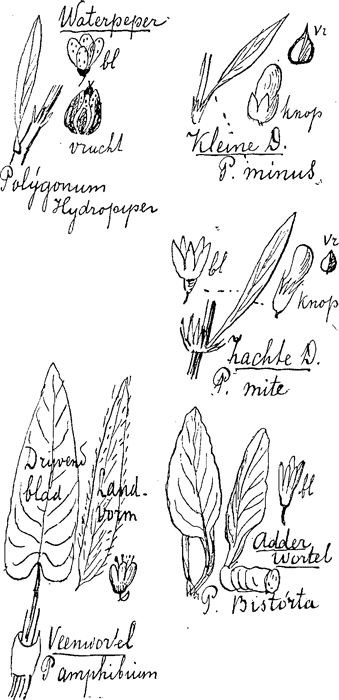 Waterpeper
bl
vrucht
Polýgonum
Hydropiper
Vr
knop
Kleine D.
P. minus
bl
Vr
knop
Zachte D.
P. mite
Drijvend
blad
Land-
vorm
Veenwortel
P amphibium
bl
Adder
wortel
P. Bistórta